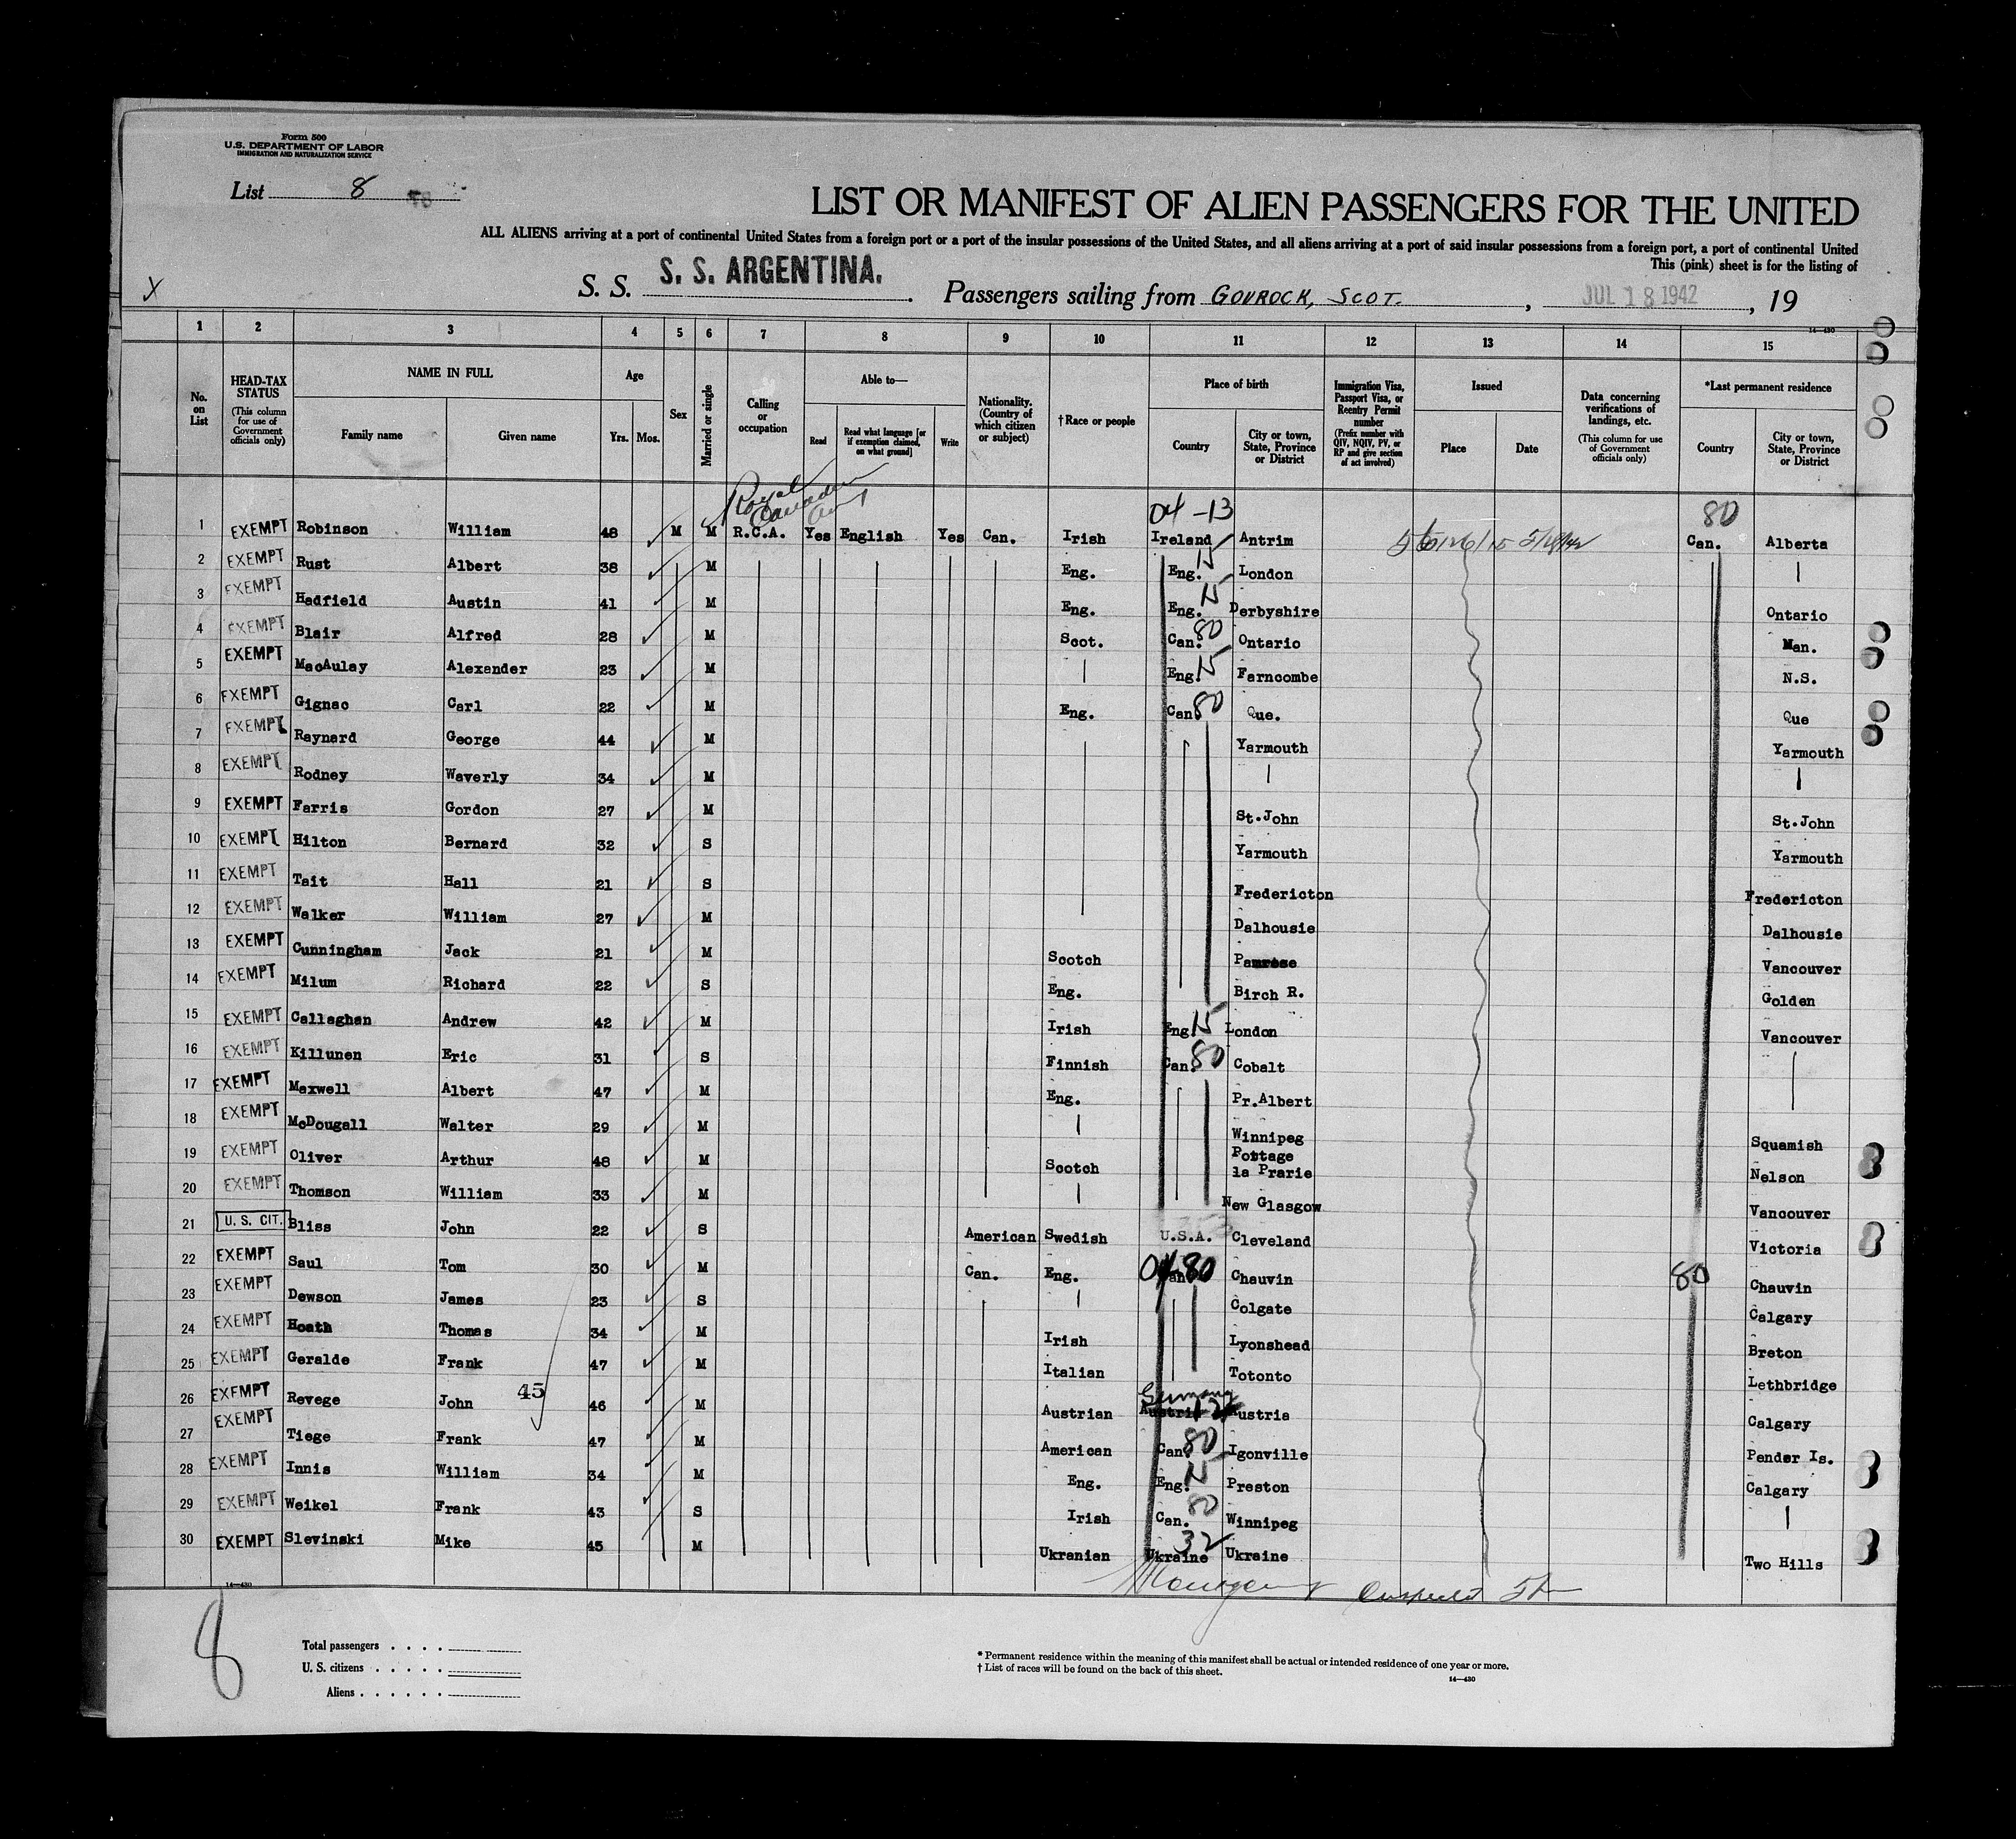 Form 500
U.S. DEPARTMENT OF LABOR
IMMIGRATION AND NATURALIZATION SERVICE
List 8
LIST OR MANIFEST OF ALIEN PASSENGERS FOR THE UNITED
ALL ALIENS arriving at a port of continental United States from a foreign port or a port of the insular possessions of the United States, and all aliens arriving at a port of said insular possessions from a foreign port, a port of continental United
This (pink) sheet is for the listing of
X
S. S. S. S. ARGENTINA. Passengers sailing from GOUROCK, SCOT. , JUL 18 1942 , 19
14—430
1 2 3 4 5 6 7 8 9 10 11 12 13 14 15
No. on List
HEAD-TAX STATUS (This column for use of Government officials only)
NAME IN FULL
Family name Given name
Age
Yrs. Mos.
Sex
Married or single
Calling or occupation
Able to—
Read Read what language [or if exemption claimed, on what ground] Write
Nationality. (Country of which citizen or subject)
†Race or people
Place of birth
Country City or town, State, Province or District
Immigration Visa, Passport Visa, or Reentry Permit number (Prefix number with QIV, NQIV, PV, or RP and give section of act involved)
Issued
Place Date
Data concerning verifications of landings, etc. (This column for use of Government officials only)
*Last permanent residence
Country City or town, State, Province or District
Royal Canadian Army
04-13 80
1 EXEMPT Robinson William 48 M M R.C.A. Yes English Yes Can. Irish Ireland Antrim Can. Alberta
2 EXEMPT Rust Albert 38 M Eng. Eng. 15 London
3 EXEMPT Hadfield Austin 41 M Eng. Eng. 15 Derbyshire Ontario
4 EXEMPT Blair Alfred 28 M Scot. Can. 80 Ontario Man.
5 EXEMPT MacAulay Alexander 23 M Eng. 15 Farncombe N.S.
6 EXEMPT Gignac Carl 22 M Eng. Can. 80 Que. Que
7 EXEMPT Raynard George 44 M Yarmouth Yarmouth
8 EXEMPT Rodney Waverly 34 M
9 EXEMPT Farris Gordon 27 M St.John St.John
10 EXEMPT Hilton Bernard 32 S Yarmouth Yarmouth
11 EXEMPT Tait Hall 21 S Fredericton Fredericton
12 EXEMPT Walker William 27 M Dalhousie Dalhousie
13 EXEMPT Cunningham Jack 21 M Scotch Vancouver
14 EXEMPT Milum Richard 22 S Eng. Birch R. Golden
15 EXEMPT Callaghan Andrew 42 M Irish Eng. 15 London Vancouver
16 EXEMPT Killunen Eric 31 S Finnish Can. 80 Cobalt
17 EXEMPT Maxwell Albert 47 M Eng. Pr.Albert
18 EXEMPT McDougall Walter 29 M Winnipeg Squamish
19 EXEMPT Oliver Arthur 48 M Scotch Portage la Prarie Nelson
20 EXEMPT Thomson William 33 M New Glasgow Vancouver
21 U. S. CIT. Bliss John 22 S American Swedish U.S.A. Cleveland Victoria
22 EXEMPT Saul Tom 30 M Can. Eng. Can. 80 Chauvin 80 Chauvin
23 EXEMPT Dewson James 23 S Colgate Calgary
24 EXEMPT Hoath Thomas 34 M Irish Lyonshead Breton
25 EXEMPT Geralde Frank 47 M Italian Totonto Lethbridge
26 EXEMPT Revege John 45 46 M Austrian Germany Austria Austria Calgary
27 EXEMPT Tiege Frank 47 M American Can. 80 Igonville Pender Is.
28 EXEMPT Innis William 34 M Eng. Eng. 15 Preston Calgary
29 EXEMPT Weikel Frank 43 S Irish Can. 80 Winnipeg
30 EXEMPT Slevinski Mike 45 M Ukranian Ukraine 32 Ukraine Two Hills
14—430
8
Total passengers . . . .
U. S. citizens . . . . .
Aliens . . . . . .
* Permanent residence within the meaning of this manifest shall be actual or intended residence of one year or more.
† List of races will be found on the back of this sheet.
14—430